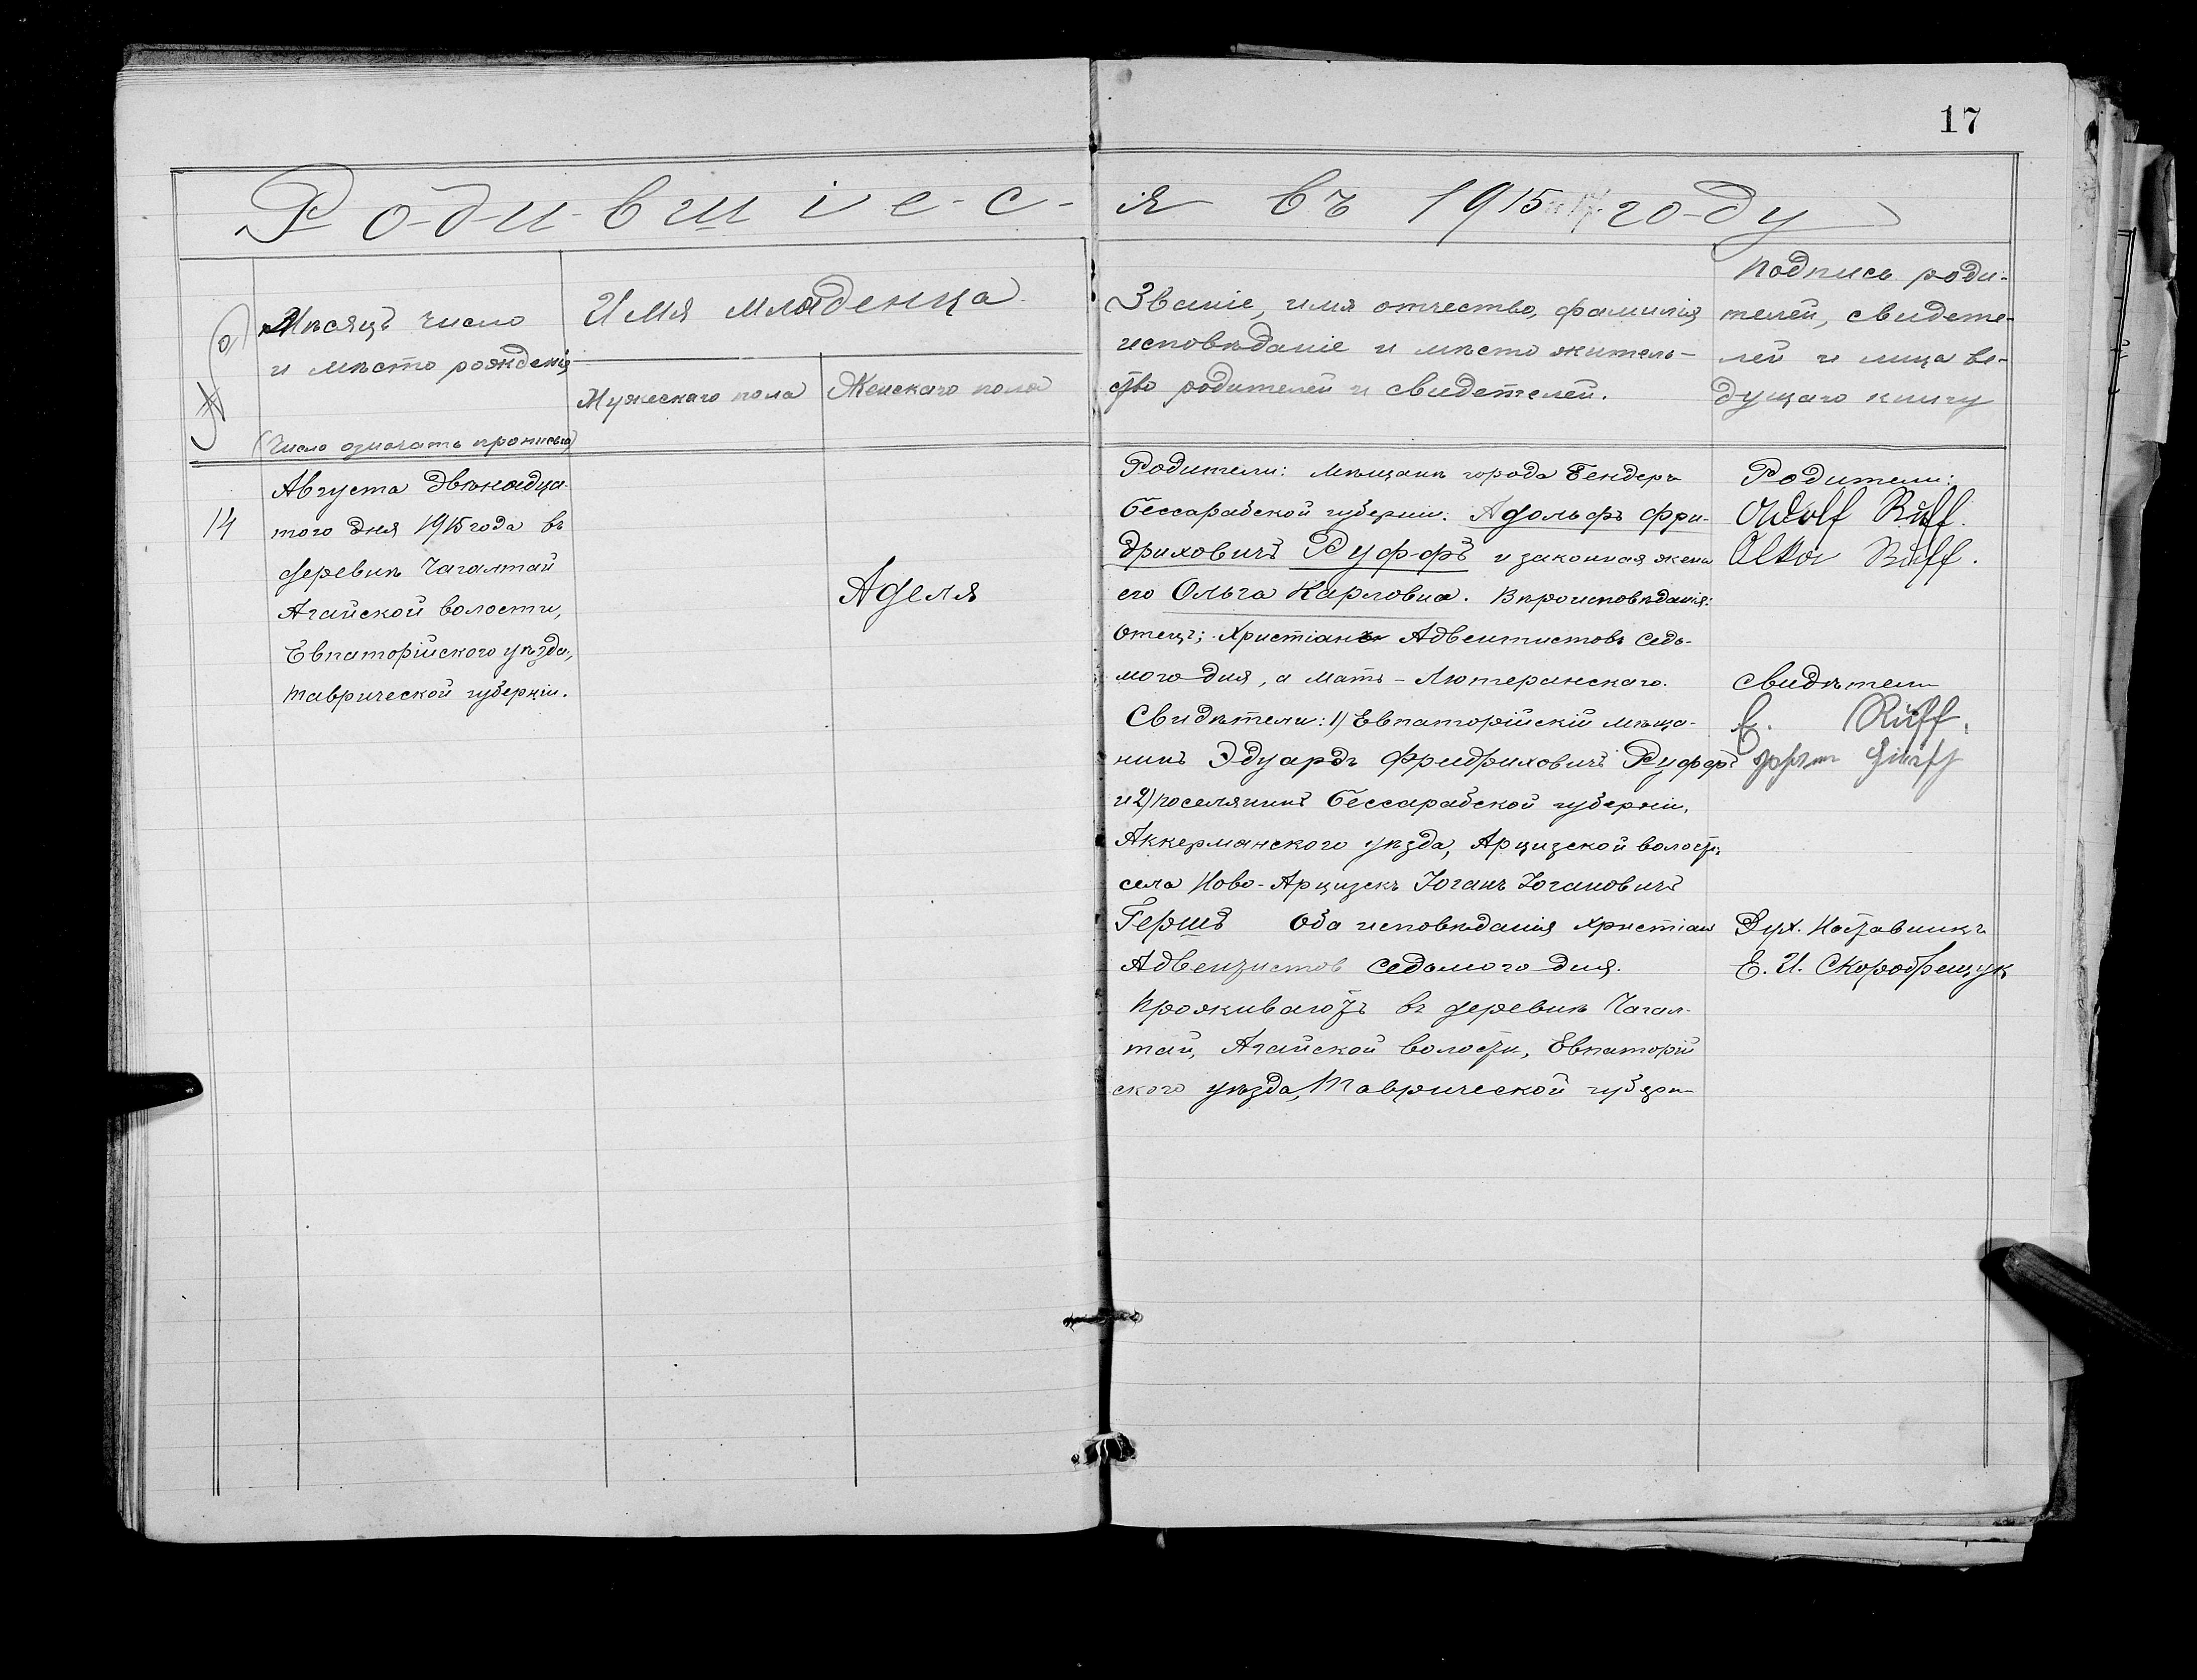 17
Родившiеся въ 1915 году
№
Мѣсяцъ число
и мѣсто рожденiя
(Число означать прописью)
Имя младенца
Мужескаго пола
Женскаго пола
Званiе, имя отчество, фамилiя
исповѣданiе и мѣсто житель-
ство родителей и свидетелей.
Подпись роди-
телей, свидете-
лей и лица ве-
дущаго книгу
14
Августа двѣнадца-
того дня 1915 года въ
деревнѣ Чагалтай
Агайской волости,
Евпаторiйского уѣзда,
Таврической губернiи.
Аделя
Родители: мѣщанъ города Бендеръ
Бессарабской губернiи: Адольфъ Фри-
дриховичъ Руффъ и законная жена
его Ольга Карловна. Вѣроисповѣданiя:
отецъ; Христiанъ Адвентистовъ Седь-
мого дня, а мать - Лютеранскаго.
Свидѣтели: 1) Евпаторiйскiй мѣща-
нинъ Эдуардъ Фридриховичъ Руффъ
и 2) поселянинъ Бессарабской губернiи,
Аккерманского уѣзда, Арцизской волости,
села Ново-Арцизскъ Iоганъ Iогановичъ
Гершъ Оба исповѣданiя христiан
Адвентистов седьмого дня.
Проживаютъ въ деревнѣ Чагал-
тай, Агайской волости, Евпаторiй
ского уѣзда, Таврической губерн
Родители:
Adolf Rüff.
Olka Rüff.
Свидѣтели
E. Rüff.
Дух. Наставникъ
Е. И. Скоробрещук